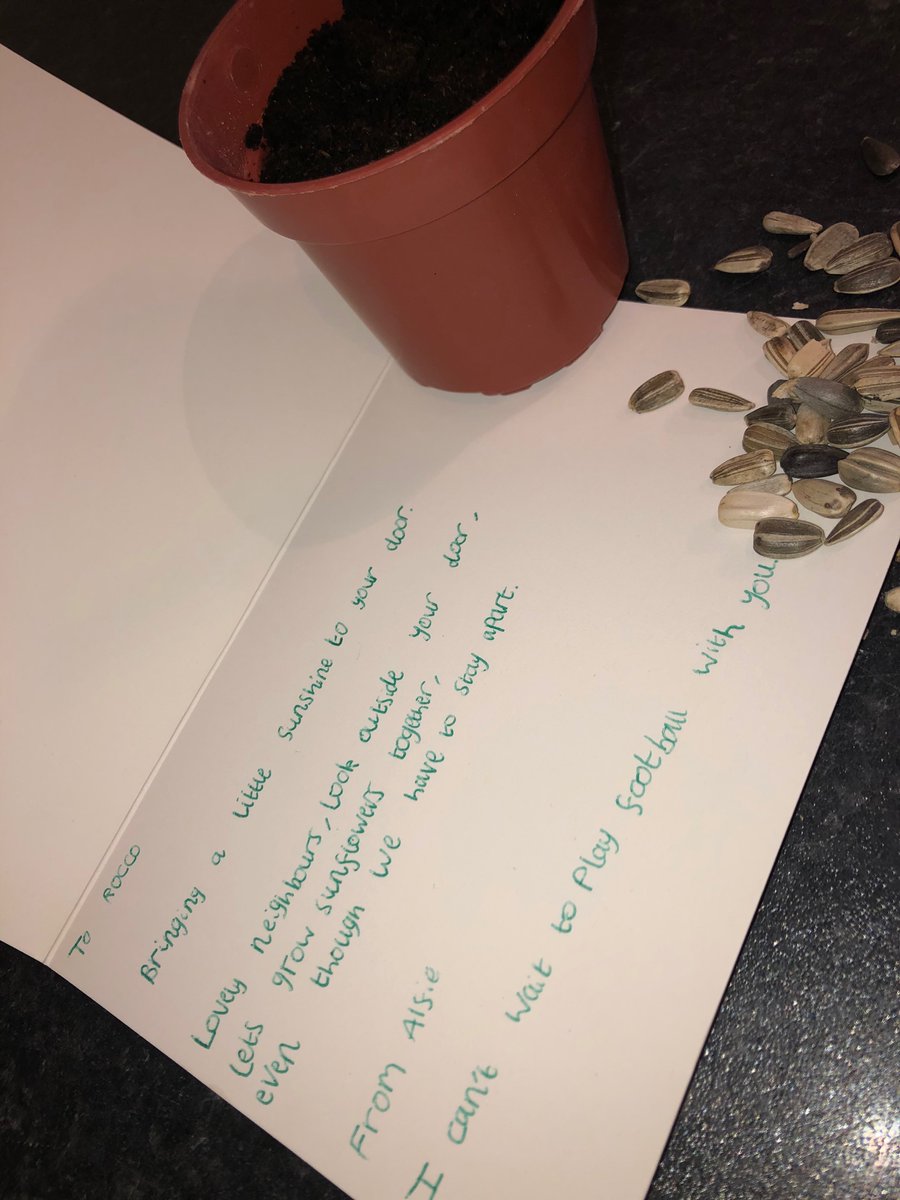 To Rocco
Bringing a little sunshine to your door.
Lovely neighbours, Look outside your door,
Lets grow sunflowers together,
even though we have to stay apart.
From Alsie
I can't wait to Play football with you.